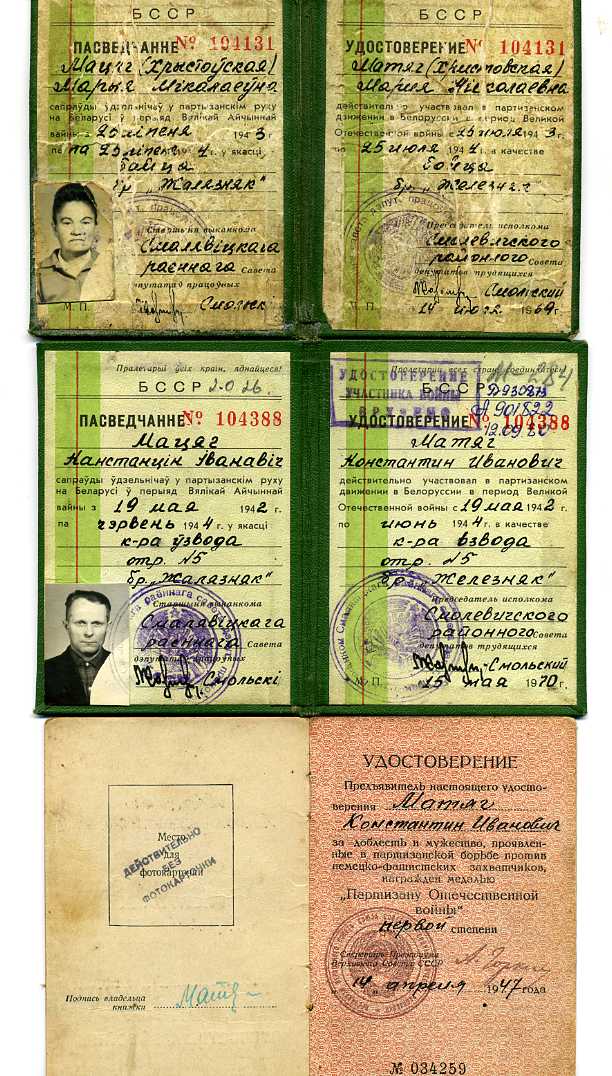 БССР
ПАСВЕДЧАННЕ № 104131
Мацяг (Хрыстоўская)
Марыя Мікалаеўна
сапраўды ўдзельнічаў у партызанскім руху
на Беларусі ў перыяд Вялікай Айчыннай
вайны з 25 ліпеня 1943 г.
па 25 ліпеня г. у якасці
байца
бр. „Жалязняк"
Старшыня выканкома
Смалявіцкага
раённага Савета
дэпутатаў працоўных
Смольскі
М. П.
БССР
УДОСТОВЕРЕНИЕ № 104131
Матяг (Христовская)
Мария Николаевна
действительно участвовал в партизанском
движении в Белоруссии в период Великой
Отечественной войны с 25 июля 1943 г.
по 25 июля 1944 г. в качестве
бойца
бр. „Железняк"
Председатель исполкома
Смолевичского
районного Совета
депутатов трудящихся
Смольский
М. П. 14 1969 г.
Пралетарыі ўсіх краін, яднайцеся!
БССР 2026.
ПАСВЕДЧАННЕ № 104388
Мацяг
Канстанцін Іванавіч
сапраўды ўдзельнічаў у партызанскім руху
на Беларусі ў перыяд Вялікай Айчыннай
вайны з 19 мая 1942 г.
па чэрвень 1944 г. у якасці
к-ра ўзвода
отр. №5
бр. „Жалязняк"
Старшыня выканкома
Смалявіцкага
раённага Савета
дэпутатаў працоўных
Смольскі
Пролетарии всех стран, соединяйтесь!
УДОСТОВЕРЕНИЕ
УЧАСТНИКА ВОЙНЫ
БССР
А 901822
12.09.80
УДОСТОВЕРЕНИЕ № 104388
Матяг
Константин Иванович
действительно участвовал в партизанском
движении в Белоруссии в период Великой
Отечественной войны с 19 мая 1942 г.
по июнь 1944 г. в качестве
к-ра взвода
отр. №5
бр. „Железняк"
Председатель исполкома
Смолевичского
районного Совета
депутатов трудящихся
Смольский
М. П. 15 мая 1970 г.
Место
для
фотокарточки
ДЕЙСТВИТЕЛЬНО
БЕЗ
ФОТОКАРТОЧКИ
Подпись владельца
книжки Матяг
УДОСТОВЕРЕНИЕ
Предъявитель настоящего удосто-
верения Матяг
Константин Иванович
за доблесть и мужество, проявлен-
ные в партизанской борьбе против
немецко-фашистских захватчиков,
награжден медалью
„Партизану Отечественной
войны"
первой степени
Секретарь Президиума
Верховного Совета СССР
„14" апреля 1947 года
№ 034259